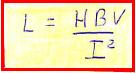 L = HBV / I²